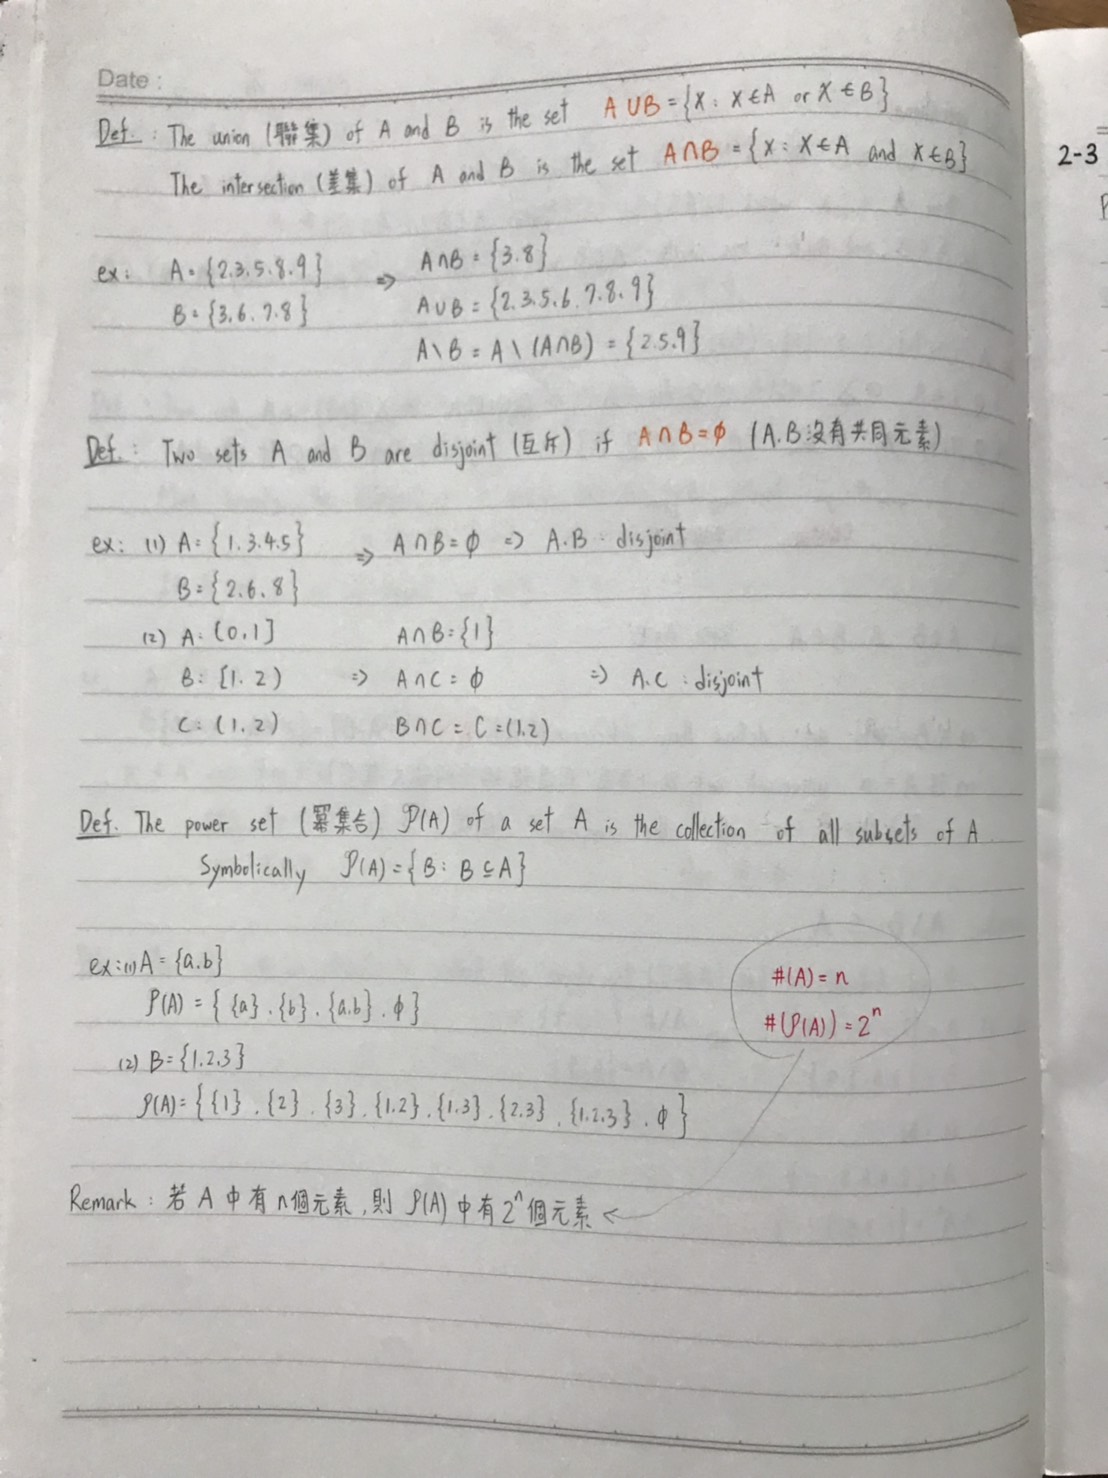 Date :
Def. : The union (聯集) of A and B is the set A∪B = {x : x∈A or x∈B}
The intersection (差集) of A and B is the set A∩B = {x : x∈A and x∈B}
2-3
ex : A = {2.3.5.8.9} ⇒ A∩B = {3.8}
B = {3.6.7.8} A∪B = {2.3.5.6.7.8.9}
A\B = A\(A∩B) = {2.5.9}
Def. : Two sets A and B are disjoint (互斥) if A∩B=∅ (A.B沒有共同元素)
ex : (1) A = {1.3.4.5} ⇒ A∩B=∅ ⇒ A.B : disjoint
B = {2.6.8}
(2) A = (0,1] A∩B = {1}
B = [1.2) ⇒ A∩C = ∅ ⇒ A.C : disjoint
C = (1.2) B∩C = C = (1.2)
Def. The power set (冪集合) P(A) of a set A is the collection of all subsets of A.
Symbolically P(A) = {B : B⊆A}
ex : (1) A = {a.b}
P(A) = { {a} . {b} . {a.b} . ∅ }
(2) B = {1.2.3}
P(A) = { {1} . {2} . {3} . {1.2} . {1.3} . {2.3} . {1.2.3} . ∅ }
#(A) = n
#(P(A)) = 2ⁿ
Remark : 若 A 中有 n個元素 , 則 P(A) 中有 2ⁿ個元素